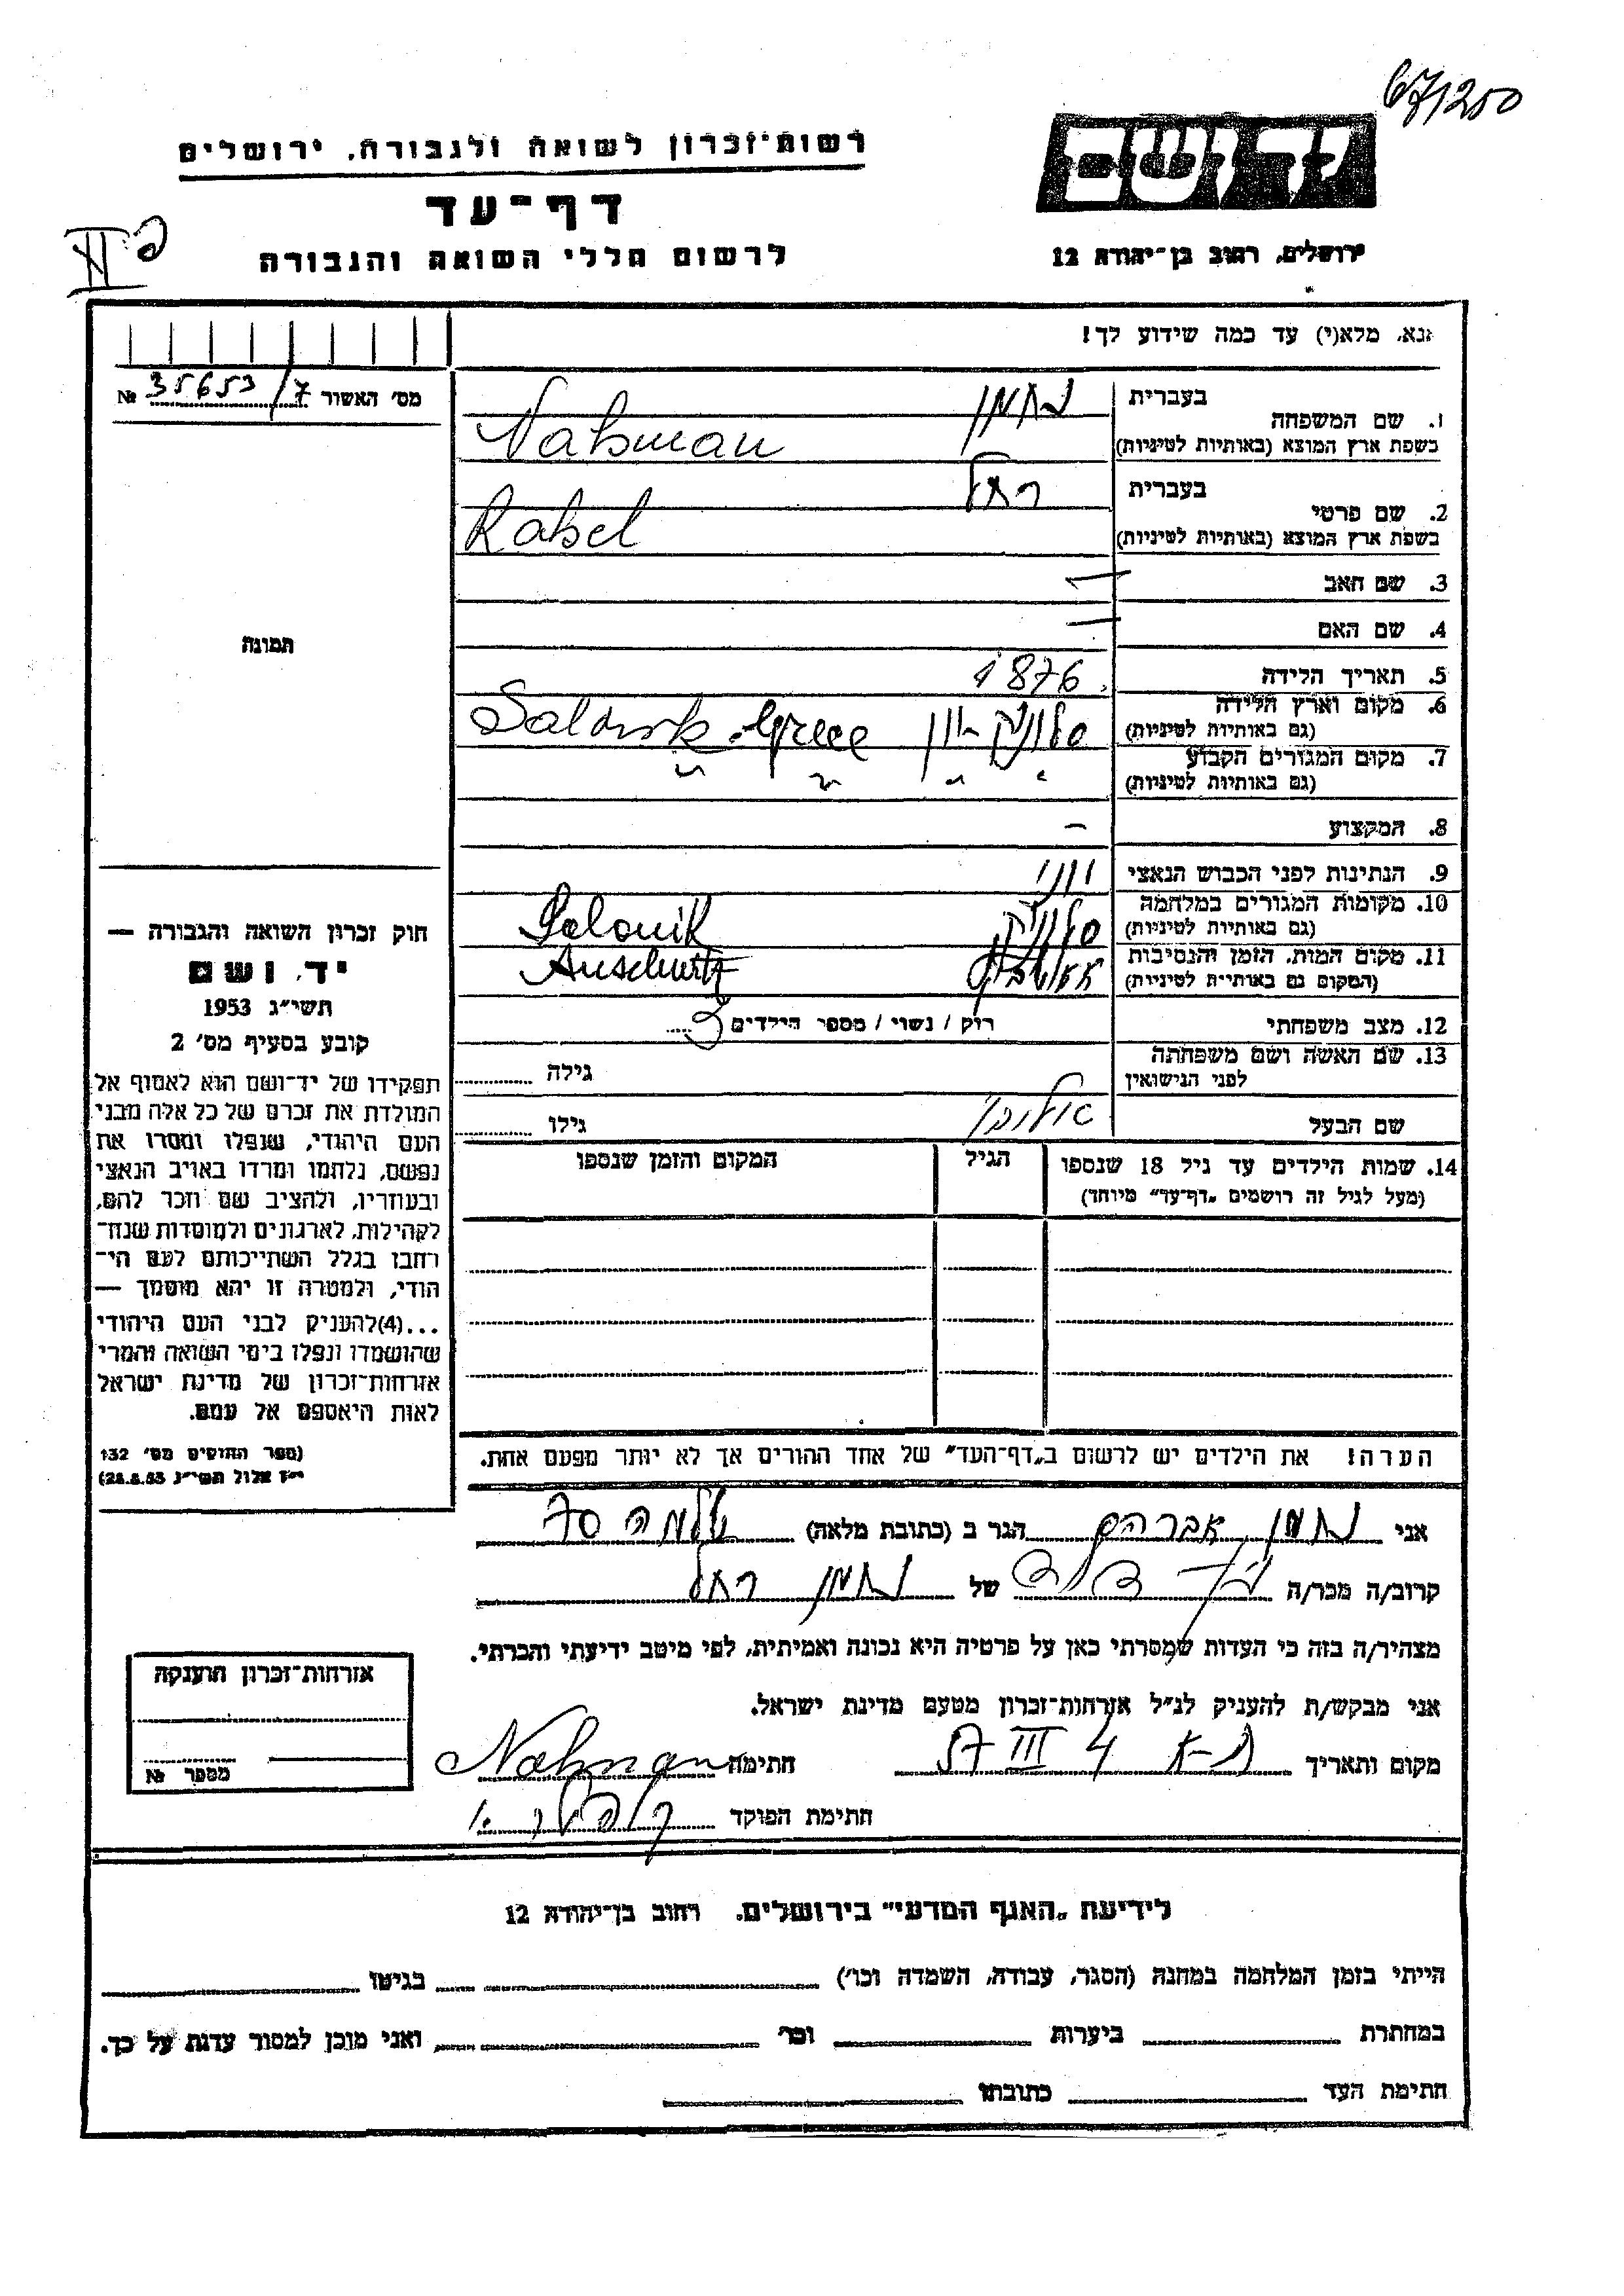 67/250
רשות־זכרון לשואה ולגבורה, ירושלים
יד ושם
דף־עד
לרשום חללי השואה והגבורה
ירושלים, רחוב בן־יהודה 12
נא, מלא(י) עד כמה שידוע לך!
מס' האשור 35653/7 №
בעברית נחמן
1. שם המשפחה
בשפת ארץ המוצא (באותיות לטיניות) Nahman
בעברית רחל
2. שם פרטי
בשפת ארץ המוצא (באותיות לטיניות) Rahel
3. שם האב —
4. שם האם —
תמונה
5. תאריך הלידה 1876
6. מקום וארץ הלידה
(גם באותיות לטיניות) סלוניק יון Salonik Greece
7. מקום המגורים הקבוע
(גם באותיות לטיניות) " " " "
8. המקצוע —
9. הנתינות לפני הכבוש הנאצי יווני
10. מקומות המגורים במלחמה
(גם באותיות לטיניות) סלוניק Salonik
11. מקום המות, הזמן והנסיבות
(המקום גם באותיות לטיניות) אאושביץ Auschwitz
12. מצב משפחתי רווק / נשוי / מספר הילדים
13. שם האשה ושם משפחתה
לפני הנישואין גילה
שם הבעל גילו
14. שמות הילדים עד גיל 18 שנספו הגיל המקום והזמן שנספו
(מעל לגיל זה רושמים „דף־עד" מיוחד)
חוק זכרון השואה והגבורה —
יד ושם
תשי"ג 1953
קובע בסעיף מס' 2
תפקידו של יד־ושם הוא לאסוף אל
המולדת את זכרם של כל אלה מבני
העם היהודי, שנפלו ומסרו את
נפשם, נלחמו ומרדו באויב הנאצי
ובעוזריו, ולהציב שם וזכר להם,
לקהילות, לארגונים ולמוסדות שנח־
רבו בגלל השתייכותם לעם הי־
הודי, ולמטרה זו יהא מוסמך —
...(4)להעניק לבני העם היהודי
שהושמדו ונפלו בימי השואה והמרי
אזרחות־זכרון של מדינת ישראל
לאות היאספם אל עמם.
(ספר החוקים מס' 132
י"ז אלול תשי"ג 28.8.53)
הערה! את הילדים יש לרשום ב„דף־העד" של אחד ההורים אך לא יותר מפעם אחת.
אני נחמן אברהם הגר ב (כתובת מלאה) שלמה 70
קרוב/ה מכר/ה של נחמן רחל
מצהיר/ה בזה כי העדות שמסרתי כאן על פרטיה היא נכונה ואמיתית, לפי מיטב ידיעתי והכרתי.
אני מבקש/ת להעניק לנ"ל אזרחות־זכרון מטעם מדינת ישראל.
מקום ותאריך ת-א 4 III 57 חתימה Nahman
חתימת הפוקד
אזרחות־זכרון הוענקה
מספר №
לידיעת „האגף המדעי" בירושלים, רחוב בן־יהודה 12
הייתי בזמן המלחמה במחנה (הסגר, עבודה, השמדה וכו') בגיטו
במחתרת ביערות וכו' ואני מוכן למסור עדות על כך.
חתימת העד כתובתו